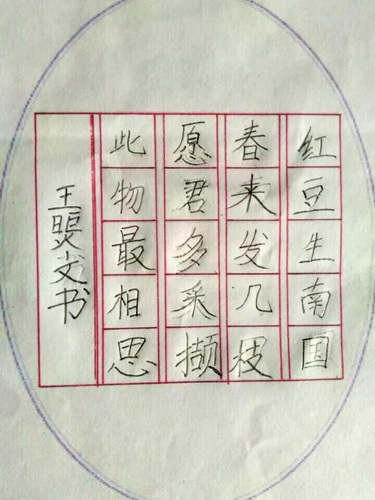 红豆生南国
春来发几枝
愿君多采撷
此物最相思
王煚文书